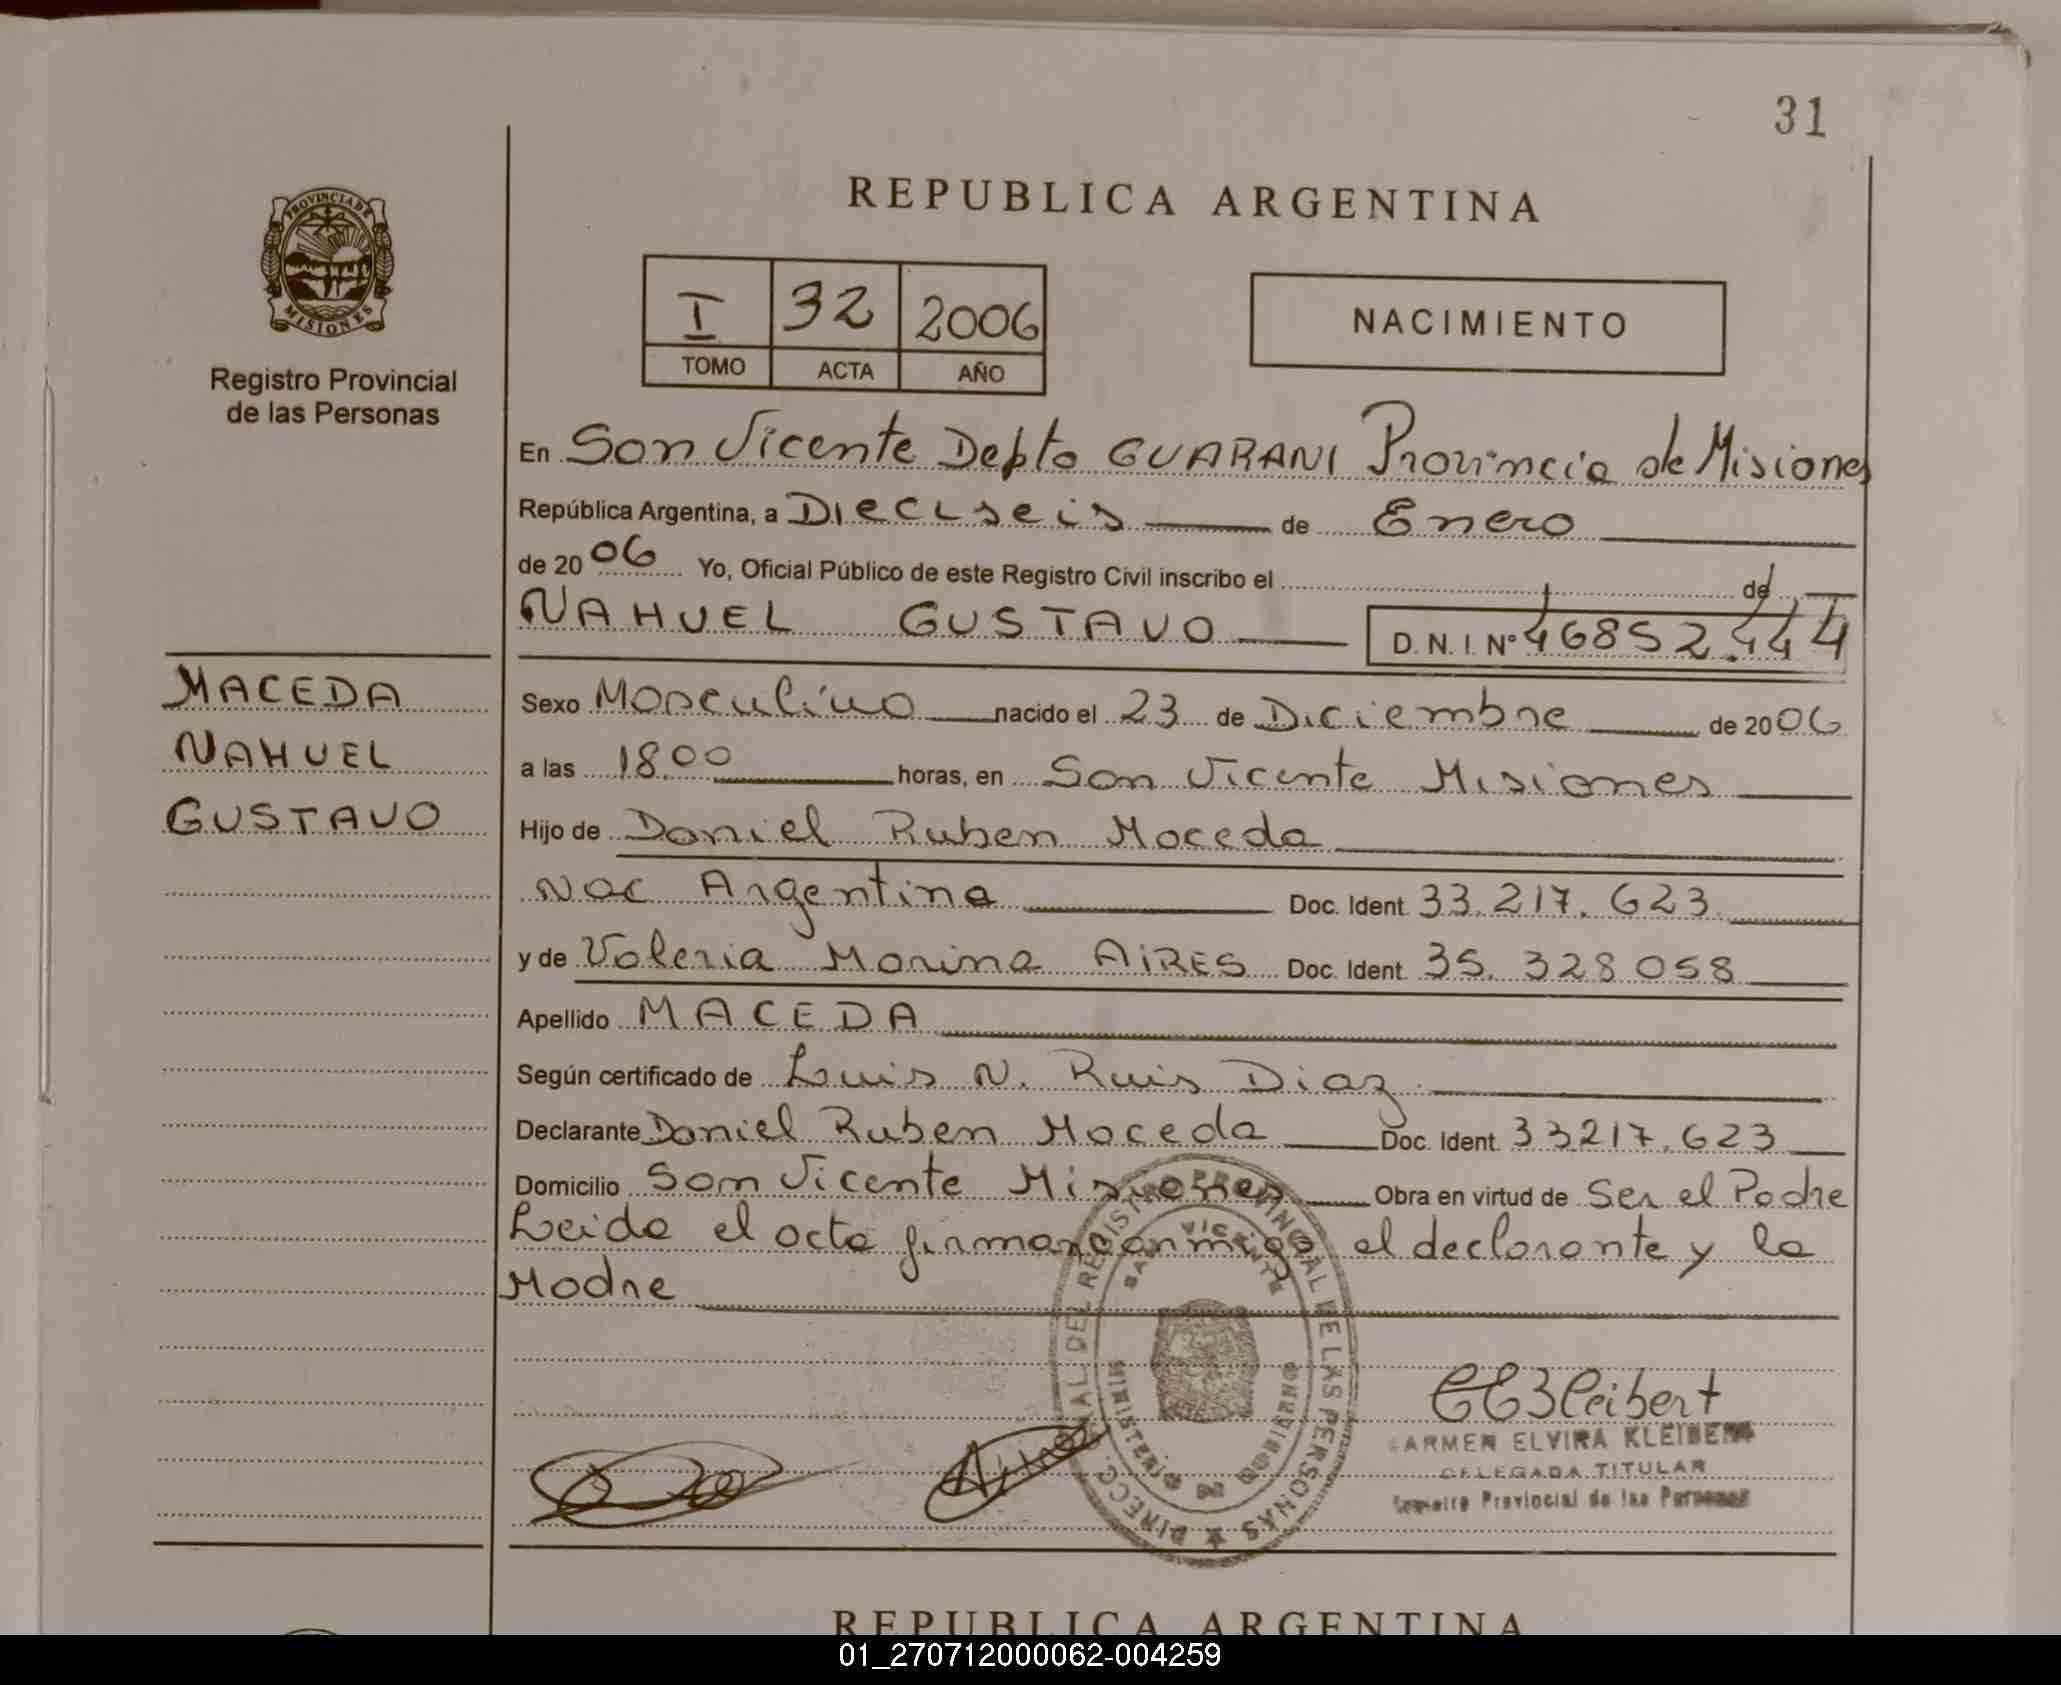 31
PROVINCIA DE
MISIONES
Registro Provincial
de las Personas
REPUBLICA ARGENTINA
I 32 2006
TOMO ACTA AÑO
NACIMIENTO
En San Vicente Depto GUARANI Provincia de Misiones
República Argentina, a Dieciseis de Enero
de 2006 Yo, Oficial Público de este Registro Civil inscribo el de
NAHUEL GUSTAVO D. N. I. Nº 46852.444
MACEDA
NAHUEL
GUSTAVO
Sexo Masculino nacido el 23 de Diciembre de 2006
a las 18.00 horas, en San Vicente Misiones
Hijo de Daniel Ruben Maceda
Nac Argentina Doc. Ident. 33.217.623
y de Valeria Marina AIRES Doc. Ident. 35.328.058
Apellido MACEDA
Según certificado de Luis N. Ruis Diaz
Declarante Daniel Ruben Maceda Doc. Ident. 33217.623
Domicilio San Vicente Misiones Obra en virtud de Ser el Padre
Leida el acta firman conmigo el declarante y la
Madre
DIRECC. GRAL. DEL REGISTRO PROVINCIAL DE LAS PERSONAS
SAN VICENTE
MINISTERIO DE GOBIERNO
CARMEN ELVIRA KLEIBERT
DELEGADA TITULAR
Registro Provincial de las Personas
REPUBLICA ARGENTINA
01_270712000062-004259